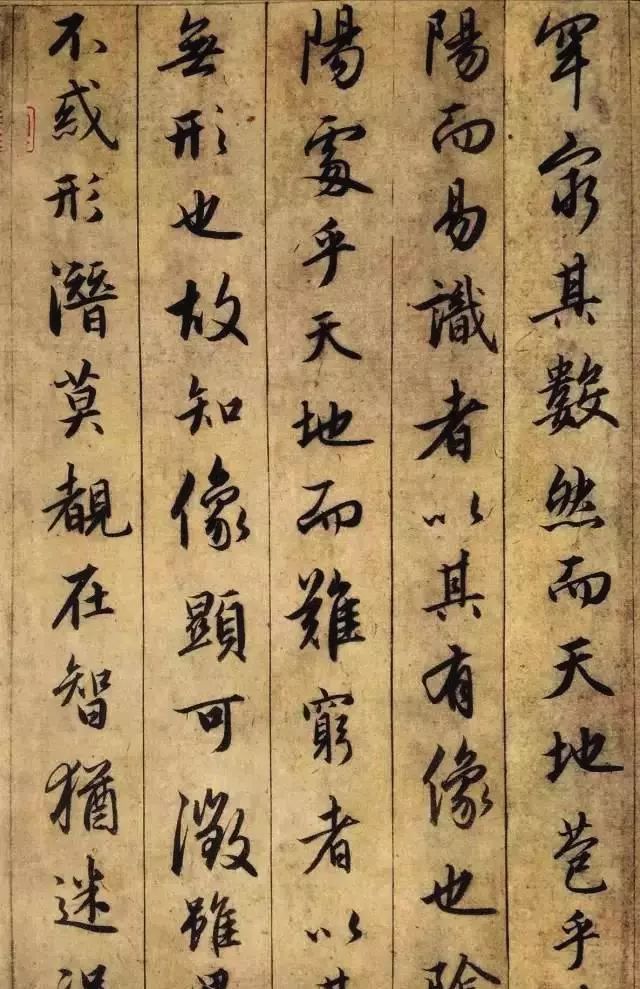 罕窮其數然而天地苞乎
陽而易識者以其有像也陰
陽處乎天地而難窮者以其
無形也故知像顯可徵雖愚
不惑形潛莫覩在智猶迷況